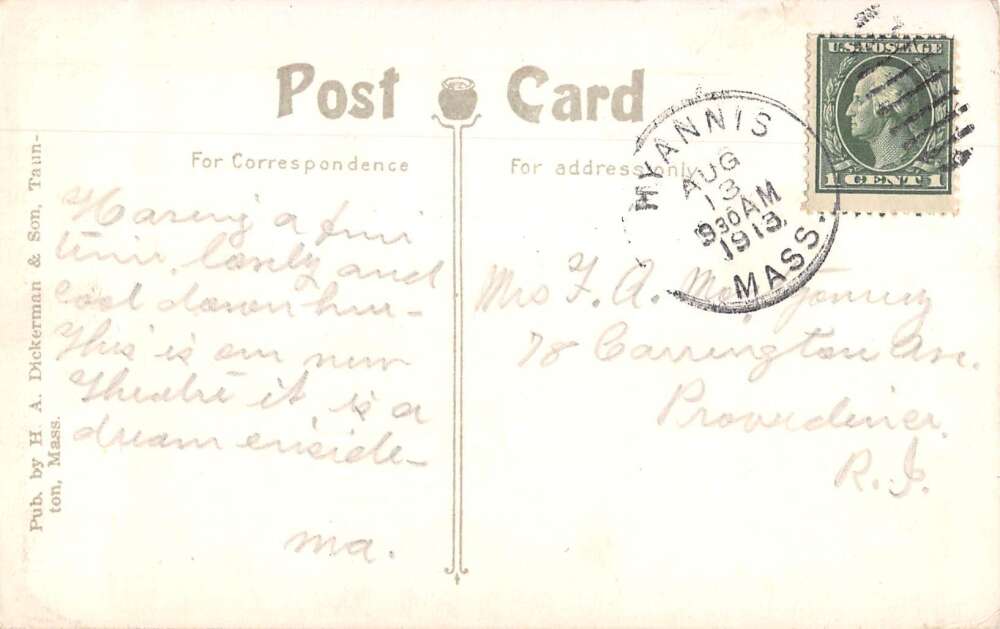 Post Card
For Correspondence
For address only
HYANNIS
AUG
13
9 30 AM
1913
MASS.
U.S. POSTAGE
1 CENT 1
Having a fine
time, lovely and
cool down here-
This is our new
Theatre it is a
dream enside-
Ma.
Mrs F. A. Montgomery
78 Carrington Ave.
Providence
R.I.
Pub. by H. A. Dickerman & Son, Taun-
ton, Mass.